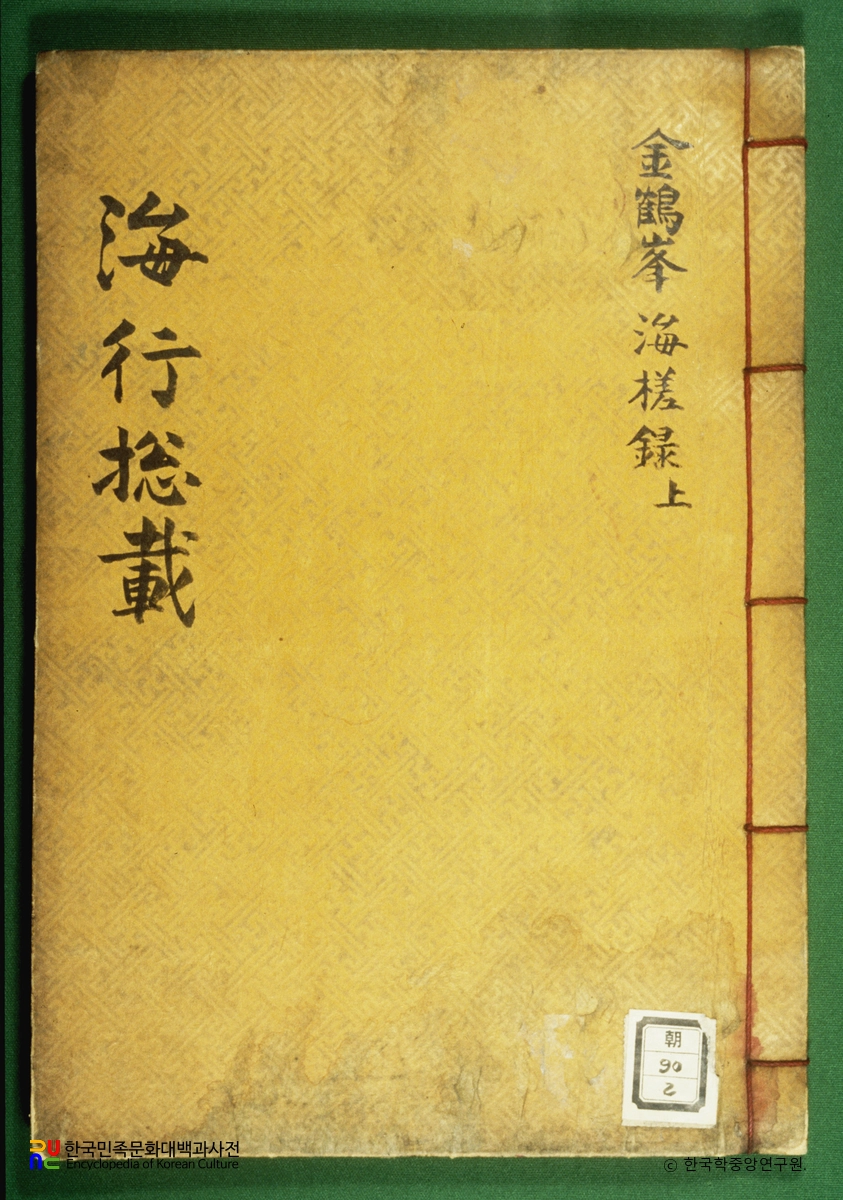 金鶴峯 海槎録 上
海行摠載
朝
90
2
한국민족문화대백과사전
Encyclopedia of Korean Culture
© 한국학중앙연구원.